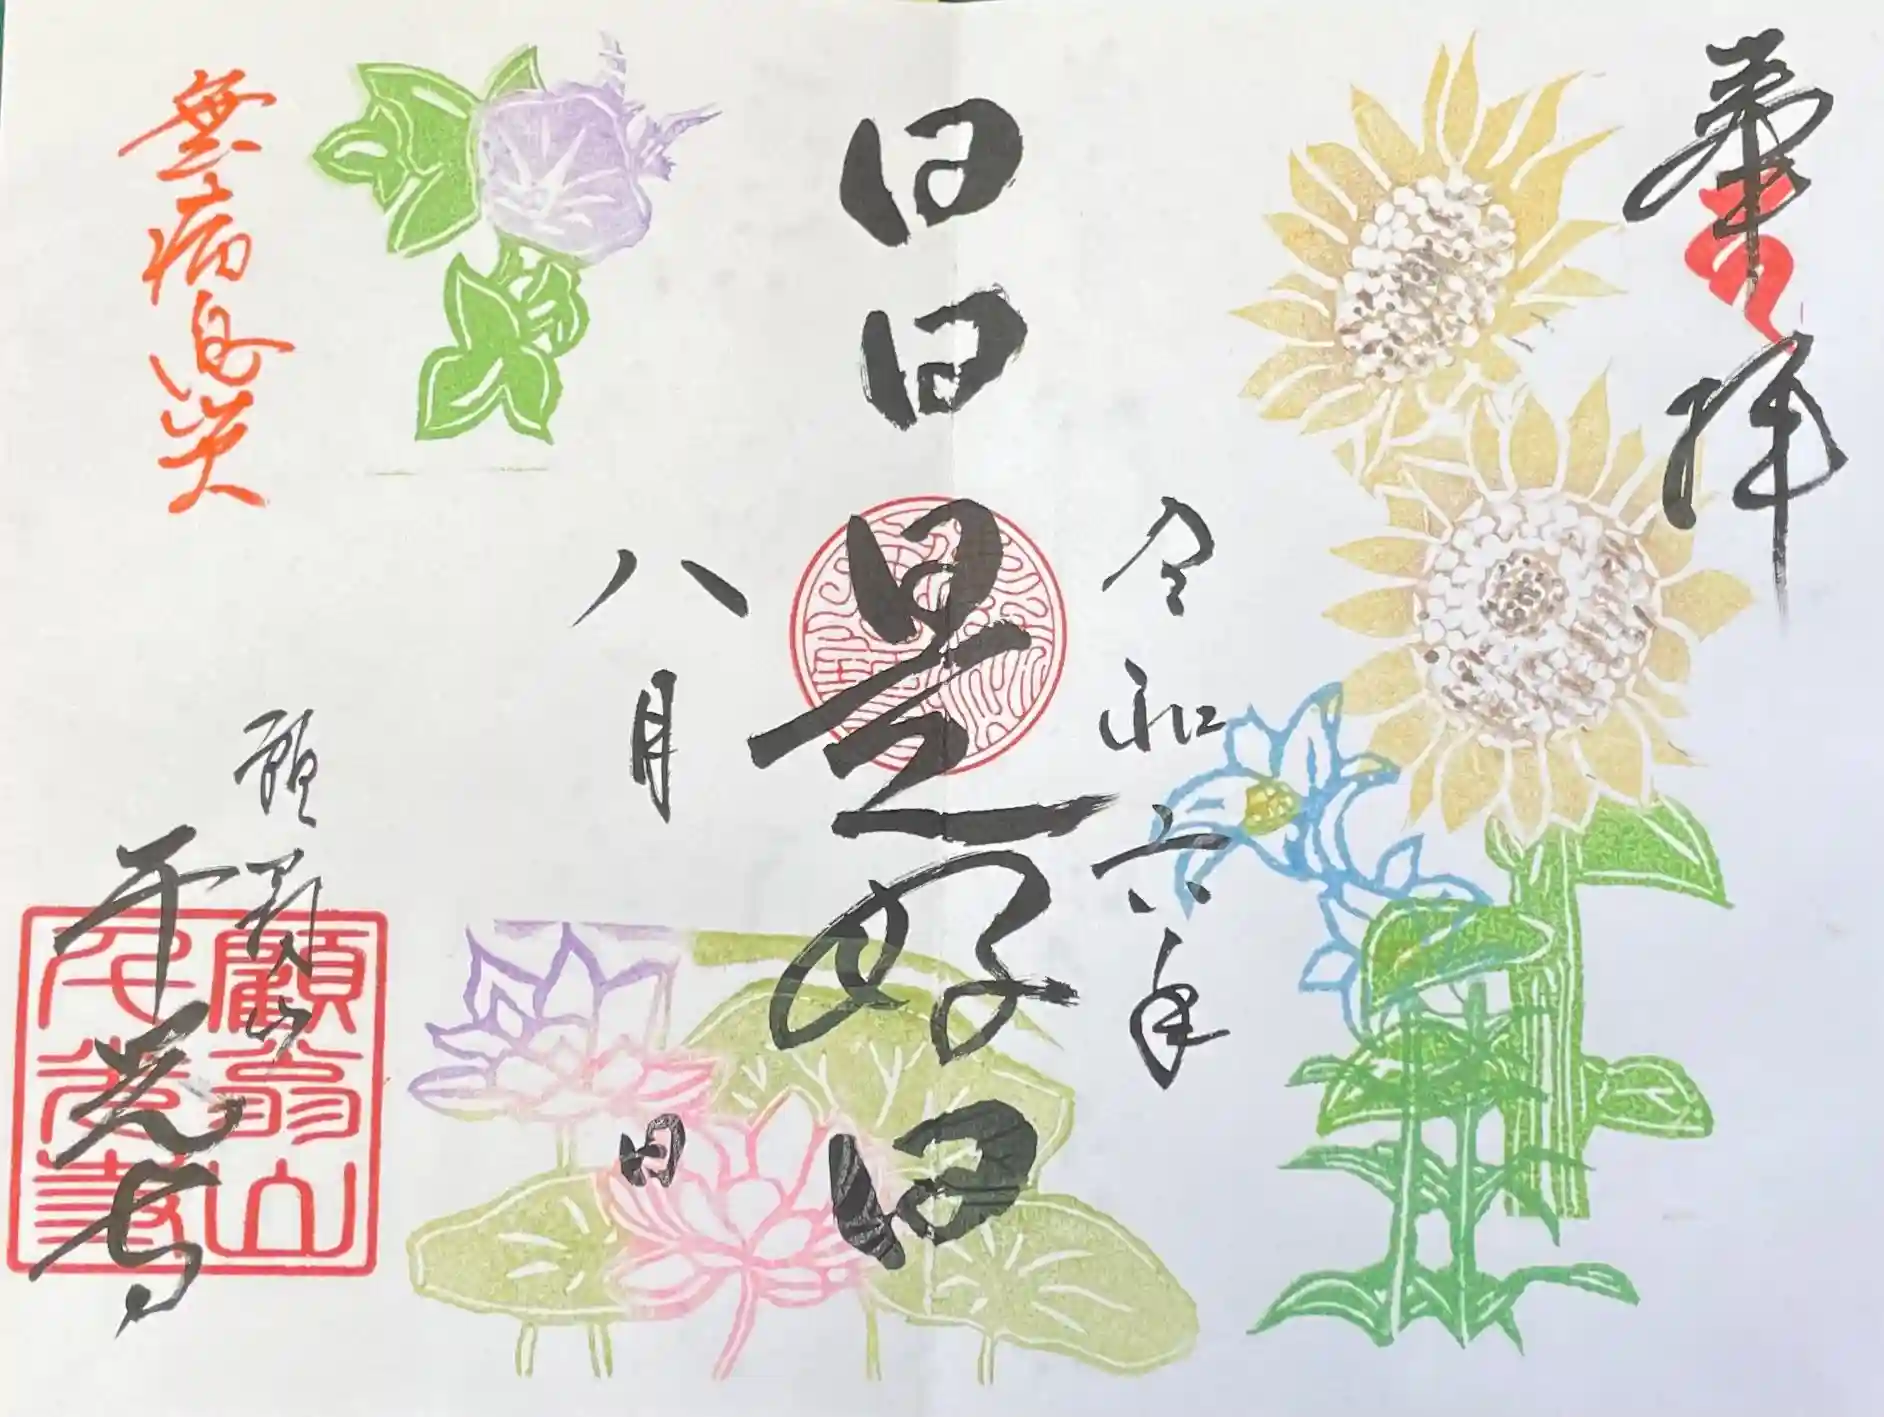 奉拝
令和六年
日日是好日
八月 日
無病息災
千光寺